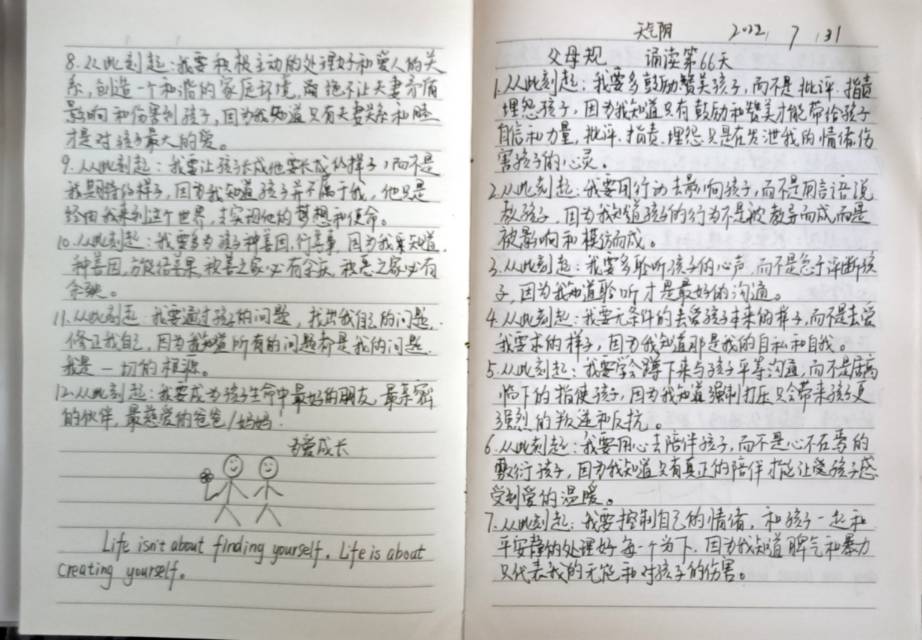 天气阴 2022, 7, 31
父母规 诵读第66天
1.从此刻起：我要多鼓励赞美孩子，而不是批评、指责
埋怨孩子，因为我知道只有鼓励和赞美才能带给孩子
自信和力量，批评、指责、埋怨只是在发泄我的情绪伤
害孩子的心灵。
2.从此刻起：我要用行动去影响孩子，而不是用言语说
教孩子，因为我知道孩子的行为不是被教导而成，而是
被影响和模仿而成。
3.从此刻起：我要多聆听孩子的心声，而不是急于评断孩
子，因为我知道聆听才是最好的沟通。
4.从此刻起：我要无条件的去爱孩子本来的样子，而不是去爱
我要求的样子，因为我知道那是我的自私和自我。
5.从此刻起：我要学会蹲下来与孩子平等沟通，而不是居高
临下的指使孩子，因为我知道强制打压只会带来孩子更
强烈的叛逆和反抗。
6.从此刻起：我要用心去陪伴孩子，而不是心不在焉的
敷衍孩子，因为我知道只有真正的陪伴才能让爱孩子感
受到爱的温暖。
7.从此刻起：我要控制自己的情绪，和孩子一起和
平安静的处理好每一个当下，因为我知道脾气和暴力
只代表我的无能和对孩子的伤害。
8.从此刻起：我要积极主动的处理好和爱人的关
系，创造一个和谐的家庭环境，绝不让夫妻矛盾
影响和伤害到孩子，因为我知道只有夫妻关系和睦
才是对孩子最大的爱。
9.从此刻起：我要让孩子长成他要长成的样子，而不是
我期待的样子，因为我知道孩子并不属于我，他只是
经由我来到这个世界，去实现他的梦想和使命。
10.从此刻起：我要多为孩子种善因，行善事，因为我深知道
种善因，方能结善果，积善之家必有余庆，积恶之家必有
余殃。
11.从此刻起：我要通过孩子的问题，找出我自己的问题，
修正我自己，因为我知道所有的问题都是我的问题，
我是一切的根源。
12.从此刻起：我要成为孩子生命中最好的朋友，最亲密
的伙伴，最慈爱的爸爸/妈妈！
为爱成长
Life isn't about finding yourself. Life is about
creating yourself.